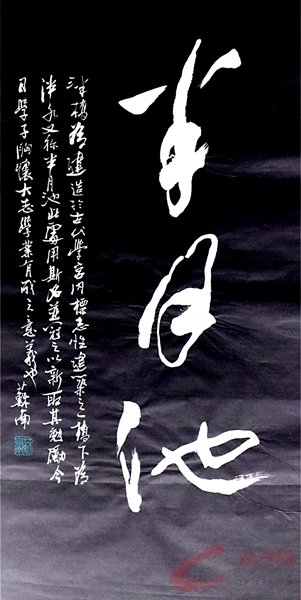 半月池
泮橋為建造於古代學宮內標志性建築之橋下為
泮水又称半月池此處用斯名並冠之以新取其勉勵今
日學子胸懷大志學業有成之意義也 蘇南